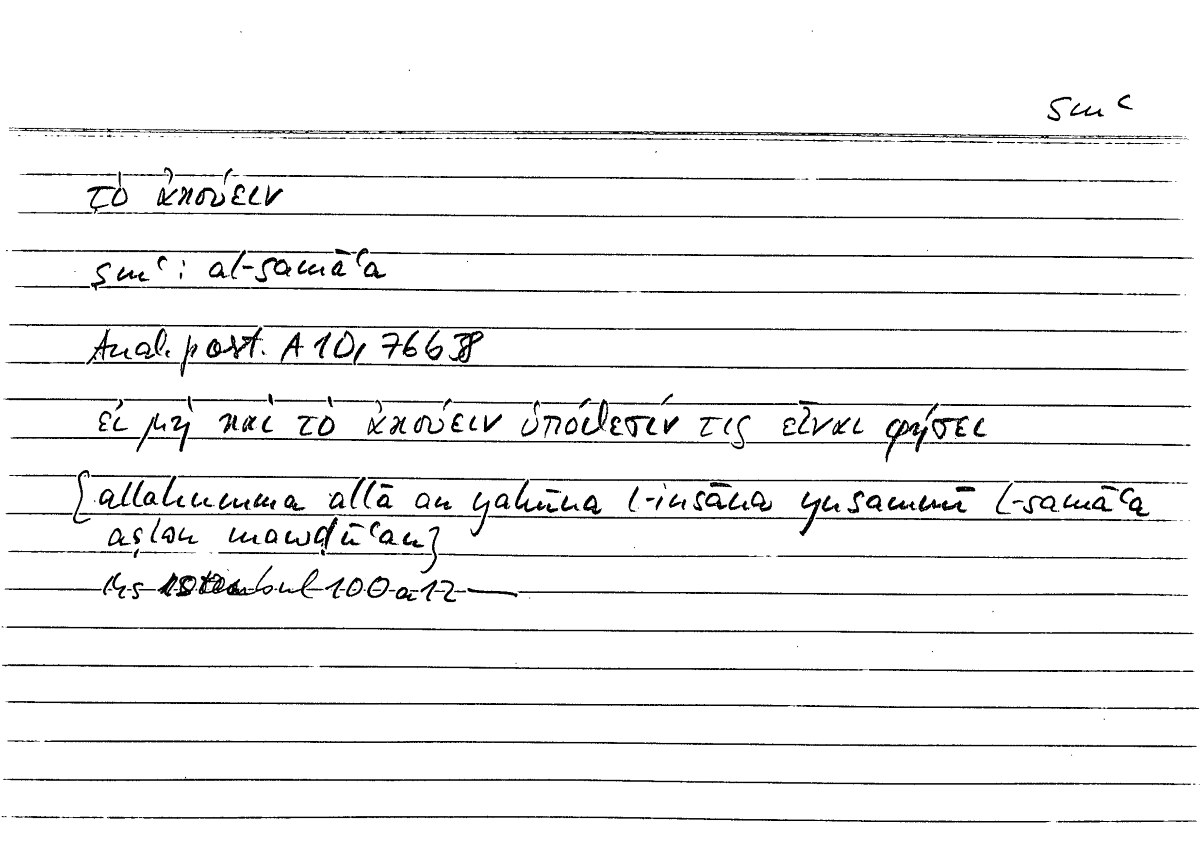 smᶜ
τὸ ἀκούειν
smᶜ: al-samāᶜa
Anal. post. A 10, 76b38
εἰ μὴ καὶ τὸ ἀκούειν ὑπόθεσίν τις εἶναι φήσει
{allahumma allā an yakūna l-insāna yusammī l-samāᶜa
aṣlan mawḍūᶜan}
Ms Istanbul 100a12